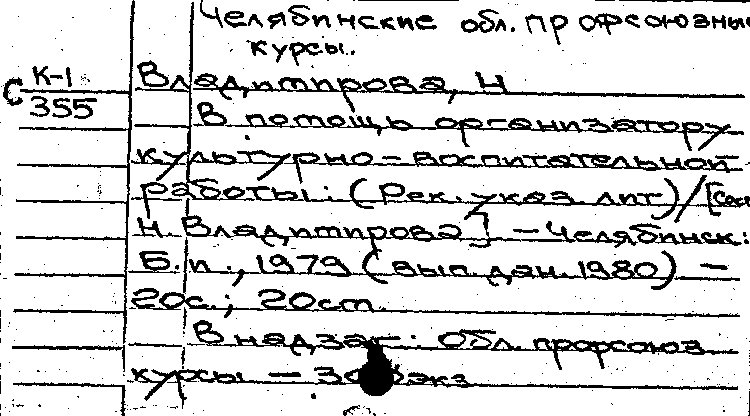 Челябинские обл. профсоюзны
курсы.
С К-1
355
Владимирова, Н
В помощь организатору
культурно-воспитательной
работы: (Рек. указ. лит) / [Сос
Н. Владимирова] - Челябинск:
Б.и., 1979 (вып. дан. 1980) -
20с.; 20см.
В надзаг: Обл. профсоюз
курсы - экз